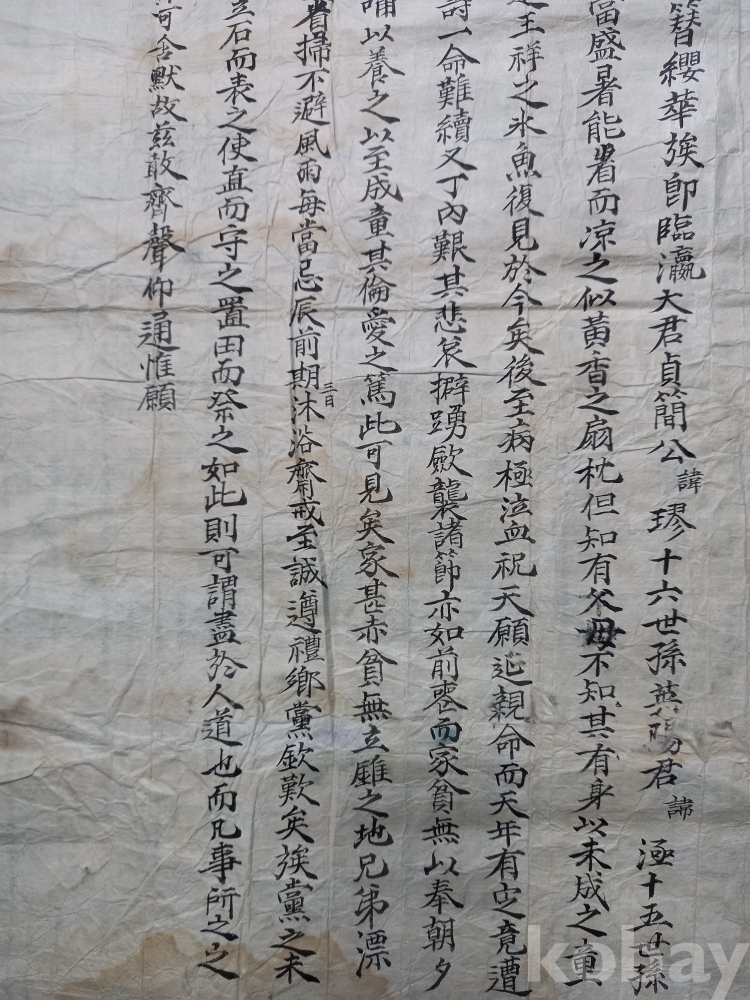 簪纓華族卽臨瀛大君貞簡公諱璆十六世孫 陽君諱極十五世孫
當盛暑能暑而凉之似黃香之扇枕但知有父母不知其有身以未成之童
王祥之氷魚復見於今矣後至病極泣血祝天願延親命而天年有定竟遭
一命難續又丁內艱其悲哀擗踴斂襲諸節亦如前喪而家貧無以奉朝夕
哺以養之以至成童其倫愛之篤此可見矣家甚赤貧無立錐之地兄弟漂
省掃不避風雨每當忌辰前期三日沐浴齋戒至誠遵禮鄕黨欽歎矣族黨之未
立石而表之使直而守之置田而祭之如此則可謂盡於人道也而凡事所之之
可含默故玆敢齊聲仰通惟願
kobay